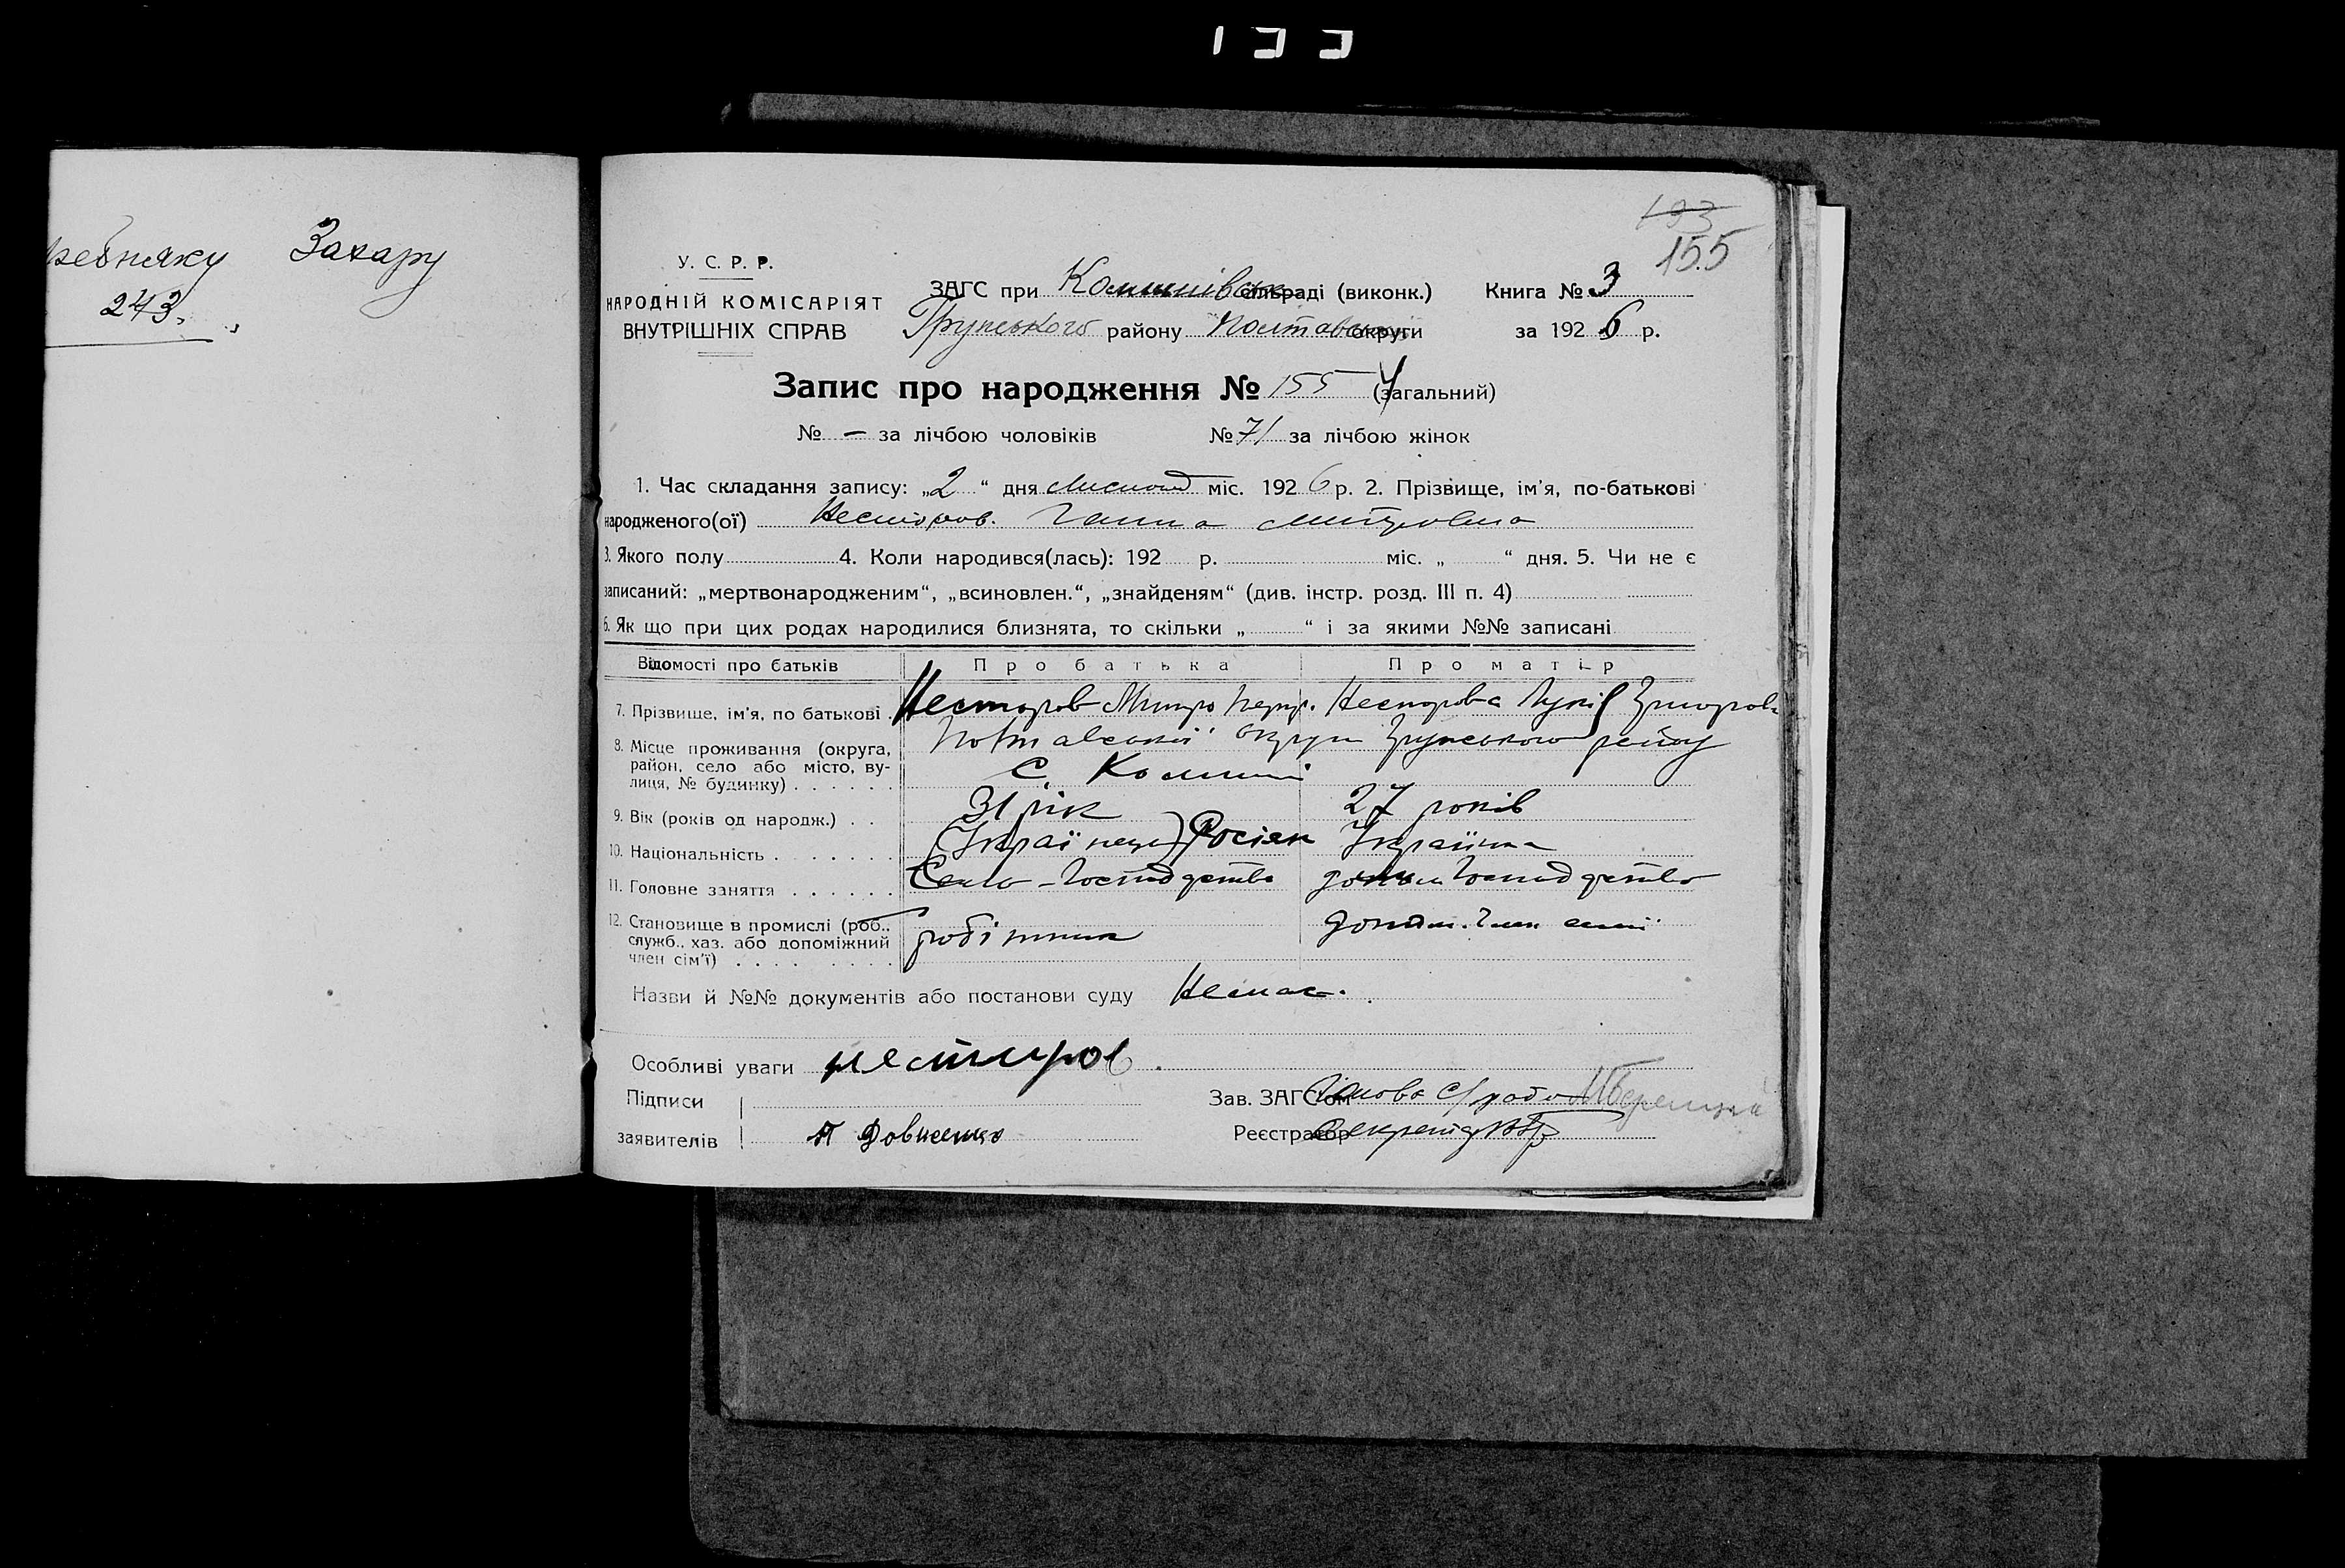 133
Захару
243.
193
155
У. С. Р. Р.
НАРОДНІЙ КОМІСАРІЯТ
ВНУТРІШНІХ СПРАВ
ЗАГС при Комишівськ сільраді (виконк.) Книга № 3
Грунського району Полтавської округи за 1926 р.
Запис про народження № 155 (загальний)
№ — за лічбою чоловіків № 71 за лічбою жінок
1. Час складання запису: „2“ дня Листопад міс. 1926 р. 2. Прізвище, ім'я, по-батькові
народженого(ої) Несторов. Ганна Митровна
3. Якого полу 4. Коли народився(лась): 192 р. міс. „ “ дня. 5. Чи не є
записаний: „мертвонародженим“, „всиновлен.“, „знайденям“ (див. інстр. розд. III п. 4)
6. Як що при цих родах народилися близнята, то скільки „ “ і за якими №№ записані
Відомості про батьків Про батька Про матір
7. Прізвище, ім'я, по батькові Несторов Митро Несторова
8. Місце проживання (округа, район, село або місто, вулиця, № будинку) Полтавської округи Грунського району
с. Комиші
9. Вік (років од народж.) 31 рік 27 років
10. Національність (Українец) Росіян Українка
11. Головне заняття Сельо-Господарство Господарство
12. Становище в промислі (роб., служб., хаз. або допоміжний член сім'ї) робітник допом. член семії
Назви й №№ документів або постанови суду Немає.
Особливі уваги нестиров.
Підписи Зав. ЗАГСом Голова с/ради
заявителів Реєстратор Секретар